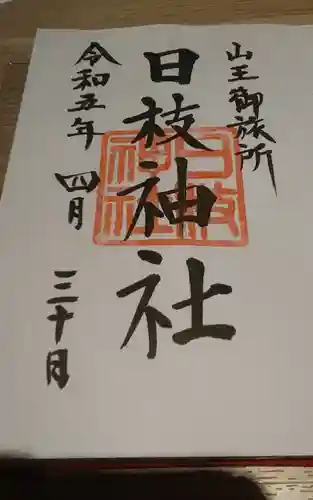 山王御旅所
日枝神社
令和五年 四月 三十日
日枝神社